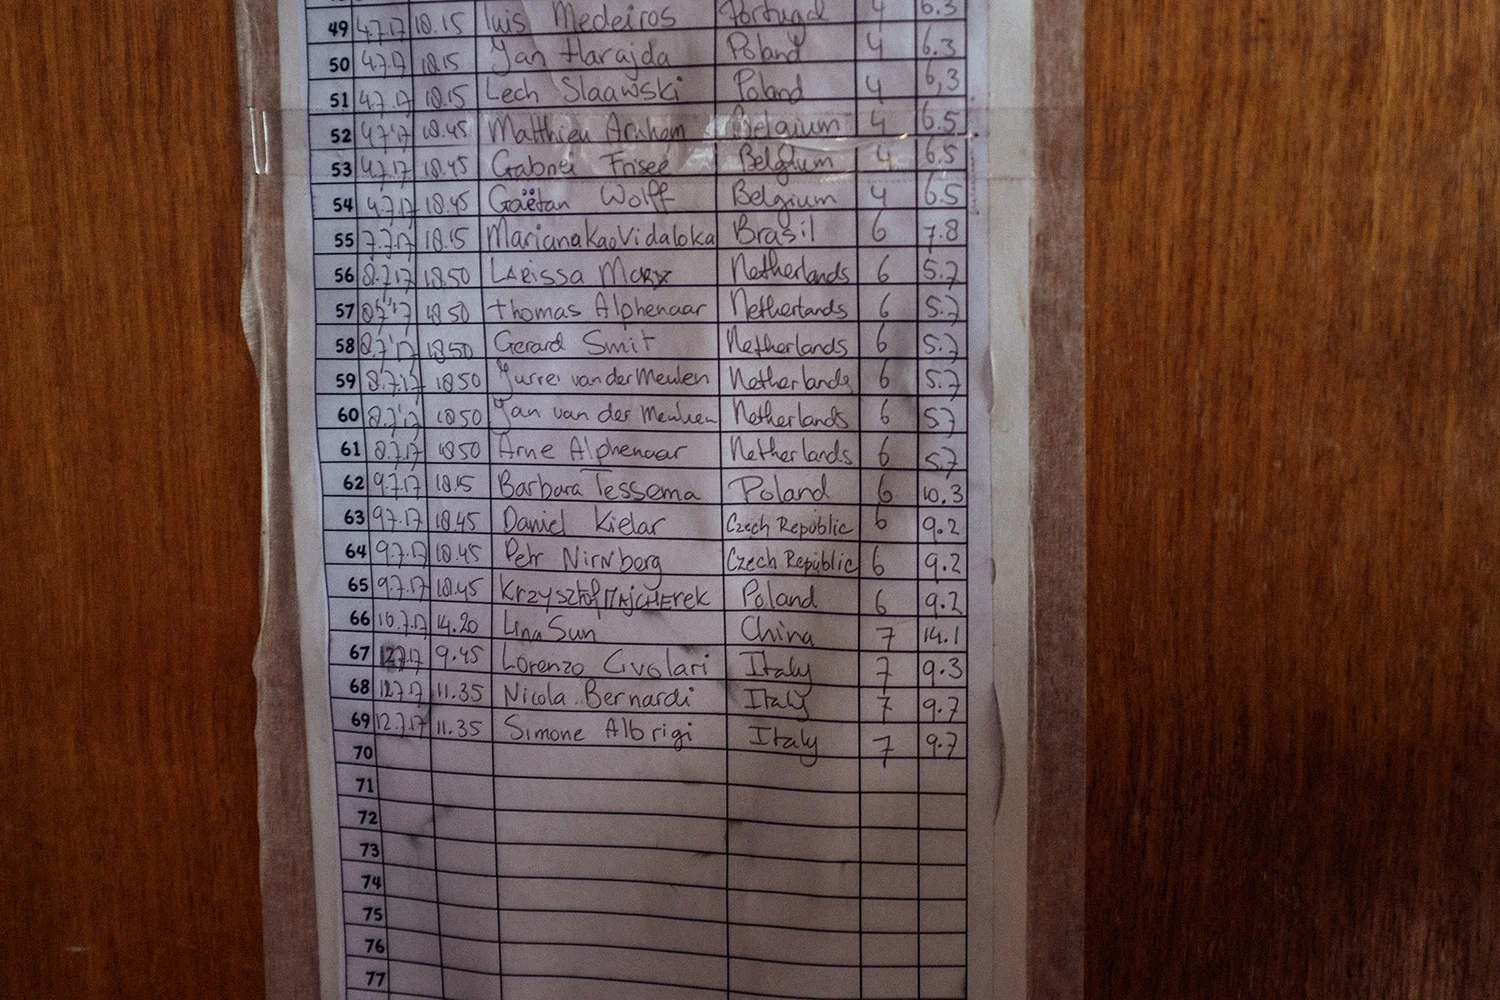 49 4.7.17 18.15 Luis Medeiros Portugal 4 6.3
50 4.7.17 18.15 Jan Harajda Poland 4 6.3
51 4.7.17 18.15 Lech Slaawski Poland 4 6,3
52 4.7.17 18.45 Matthieu Belgium 4 6.5
53 4.7.17 18.45 Gabriel Frisee Belgium 4 6.5
54 4.7.17 18.45 Gaëtan Wolff Belgium 4 6.5
55 7.7.17 18.15 MarianaKaoVidaloka Brasil 6 7.8
56 8.7.17 18.50 LArissa Marx Netherlands 6 5.7
57 8.7.17 18.50 Thomas Alphenaar Netherlands 6 5.7
58 8.7.17 18.50 Gerard Smit Netherlands 6 5.7
59 8.7.17 18.50 van der Meulen Netherlands 6 5.7
60 8.7.17 18.50 Jan van der Meulen Netherlands 6 5.7
61 8.7.17 18.50 Arne Alphenaar Netherlands 6 5.7
62 9.7.17 18.15 Barbara Tessema Poland 6 10.3
63 9.7.17 18.45 Daniel Kielar Czech Republic 6 9.2
64 9.7.17 18.45 Petr Nirnberg Czech Republic 6 9.2
65 9.7.17 18.45 Krzysztof MAjCHErek Poland 6 9.2
66 10.7.17 14.20 Lina Sun China 7 14.1
67 12.7.17 9.45 Lorenzo Gvolari Italy 7 9.3
68 12.7.17 11.35 Nicola Bernardi Italy 7 9.7
69 12.7.17 11.35 Simone Albrigi Italy 7 9.7
70
71
72
73
74
75
76
77